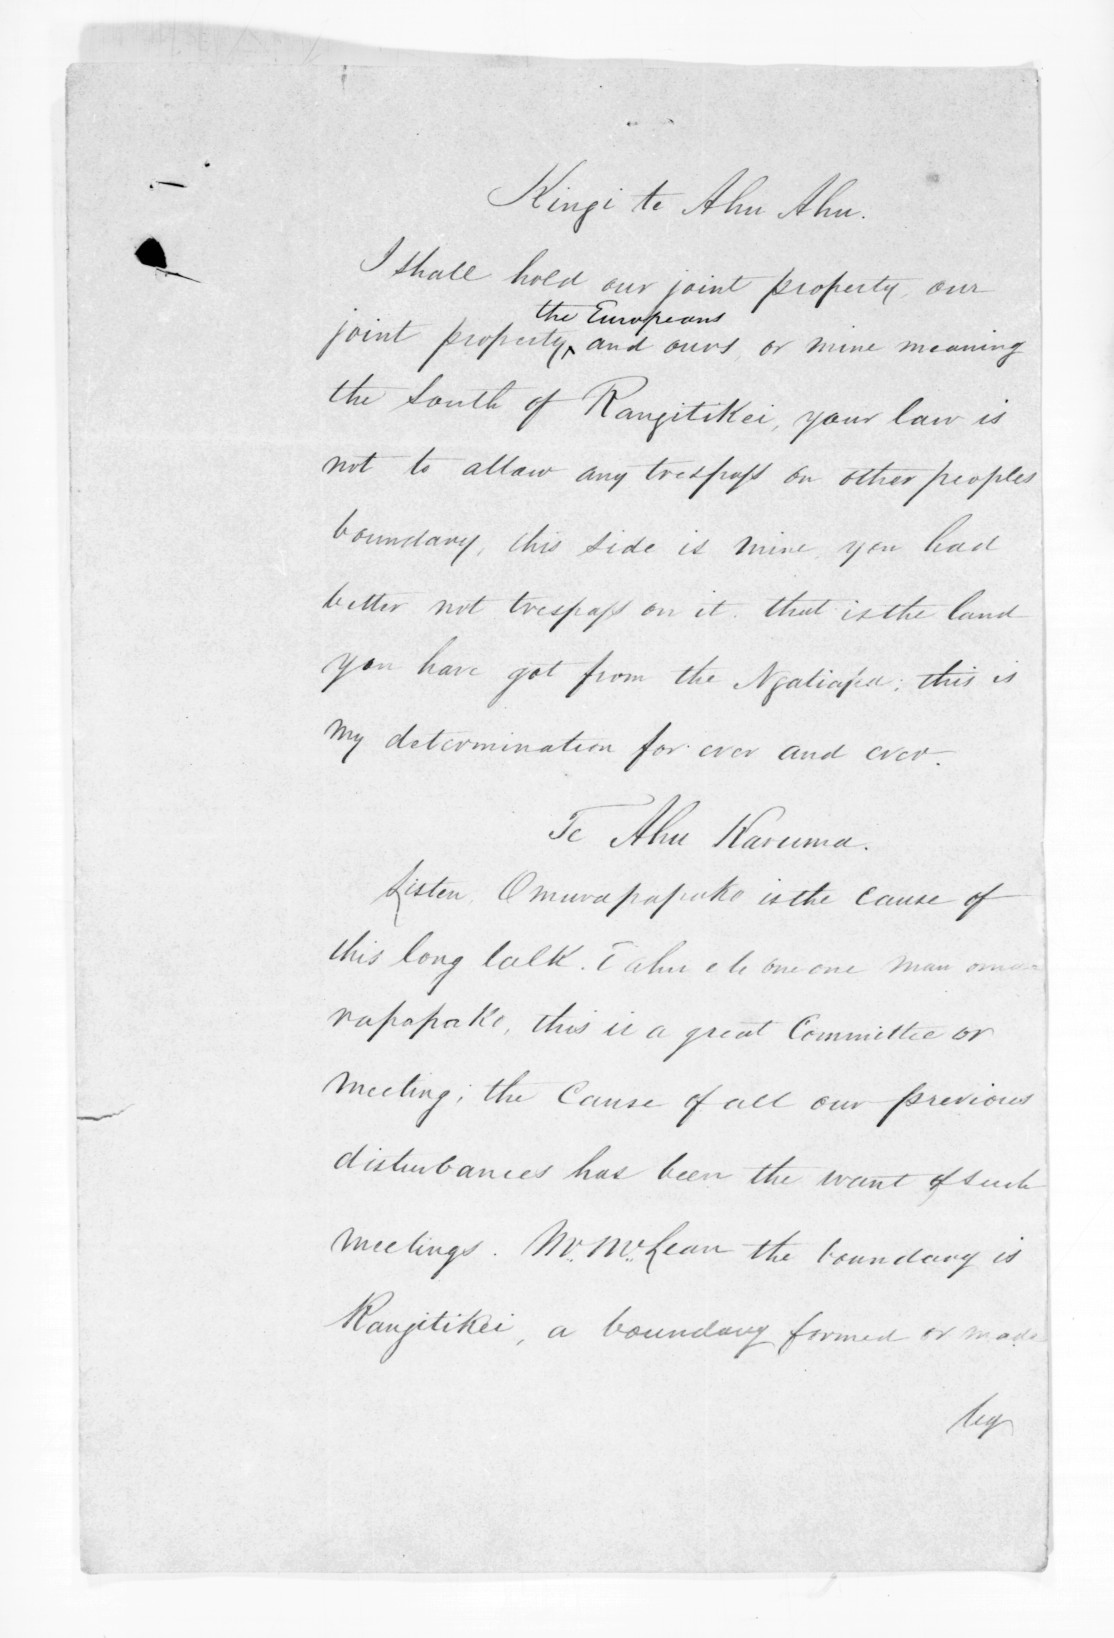 Kingi te Ahu Ahu.
I shall hold our joint property, our
the Europeans
joint property ‸ and ours, or mine meaning
the South of Rangitikei, your law is
not to allow any trespass on other peoples
boundary, this side is mine, you had
better not trespass on it. that is the land
you have got from the Ngatiapa; this is
my determination for ever and ever.
Te Ahu Karuma.
Listen, Omurapapako is the cause of
this long talk. one man
rapapako, this is a great Committee or
meeting; the Cause of all our previous
disturbances has been the want of such
meetings. Mr. McLean the boundary is
Rangitikei, a boundary formed or made
by